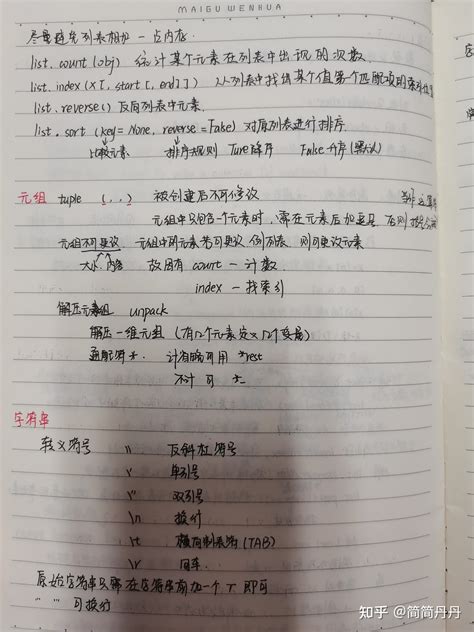 MAIGU WENHUA
尽量避免列表相加 一点内存.
list.count(obj) 统计某个元素在列表中出现的次数.
list.index(x[, start[, end]]) 从列表中找出某个值第一个匹配项的索引位置
list.reverse() 反向列表中元素.
list.sort (key=None, reverse=False) 对原列表进行排序.
比较元素 排序规则 Ture降序 False升序(默认)
元组 tuple (,,) 被创建后不可修改
元组中只包含一个元素时, 需在元素后加逗号, 否则
元组不可更改 元组中所元素若可更改, 例列表, 则可更改元素
大小 内容 故固有 count — 计数
index — 找索引
解压元素组 unpack
解压一维元组 (有几个元素定义几个变量)
通配符*. 计省略可用 *rest
不计 可 *_
字符串
转义符号 \\ 反斜杠符号
\' 单引号
\" 双引号
\n 换行
\t 横向制表符(TAB)
\r 回车
原始字符串只需在字符串前加一个 r 即可
可换行
知乎 @简简丹丹